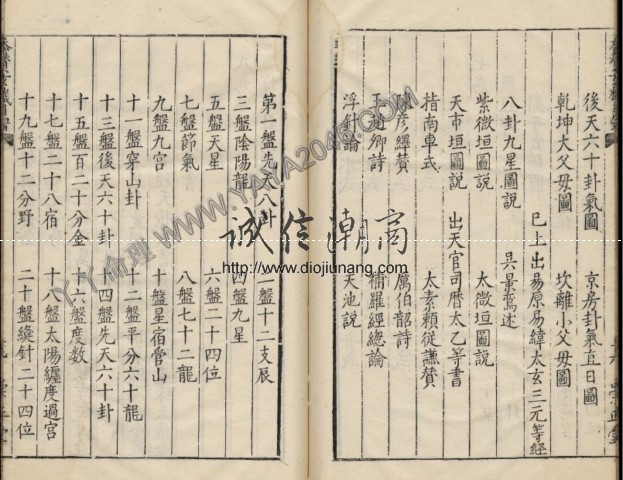 後天六十卦氣圖 京房卦氣直日圖
乾坤大父母圖 坎離小父母圖
已上出易原易緯太玄三元等經
八卦九星圖說 吳景鸞述
紫微垣圖說 太微垣圖說
天市垣圖說 出天官司曆太乙等書
指南車式 太素顏從謙贊
陳彥纙贊 厲伯韶詩
王趙卿詩 羅經總論
浮針論 天池說
第一盤先天八卦 二盤十二支辰
三盤陰陽龍 四盤九星
五盤天星 六盤二十四位
七盤節氣 八盤七十二龍
九盤九宮 十盤星宿管山
十一盤穿山卦 十二盤平分六十龍
十三盤後天六十卦 十四盤先天六十卦
十五盤百二十分金 十六盤度数
十七盤二十八宿 十八盤太陽纏度過宮
十九盤十二分野 二十盤縫針二十四位
誠信潮商
http://www.diojiunang.com/
丫丫命理 WWW.YAYA2046.COM